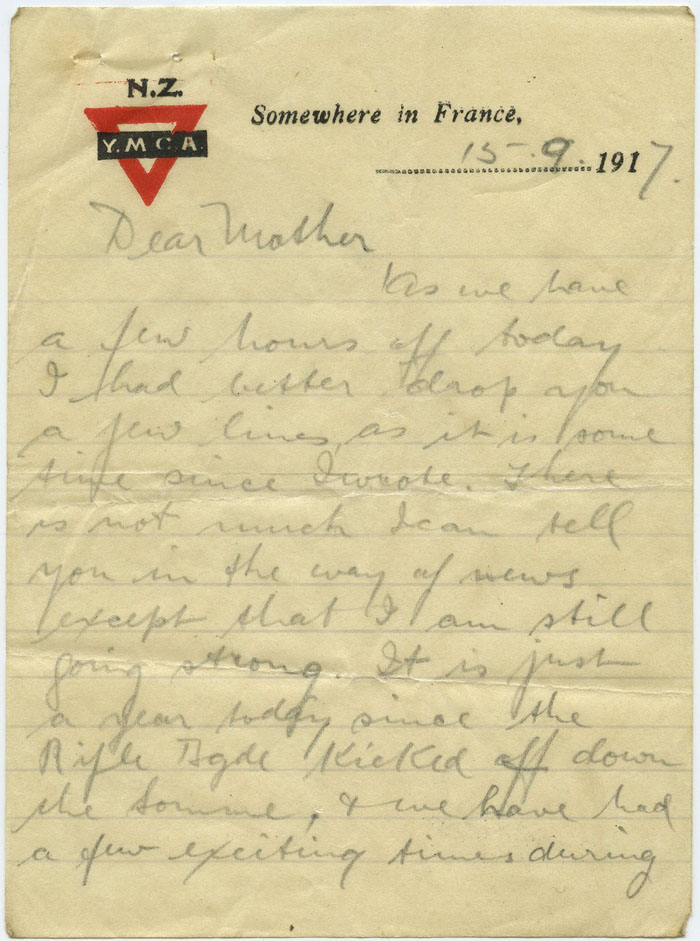 N.Z.
Y.M.C.A.
Somewhere in France,
15.9.1917.
Dear Mother
As we have
a few hours off today
I had better drop you
a few lines, as it is some
time since I wrote. There
is not much I can tell
you in the way of news
except that I am still
going strong. It is just
a year today since the
Rifle Bgde Kicked off down
the Somme, & we have had
a few exciting times during